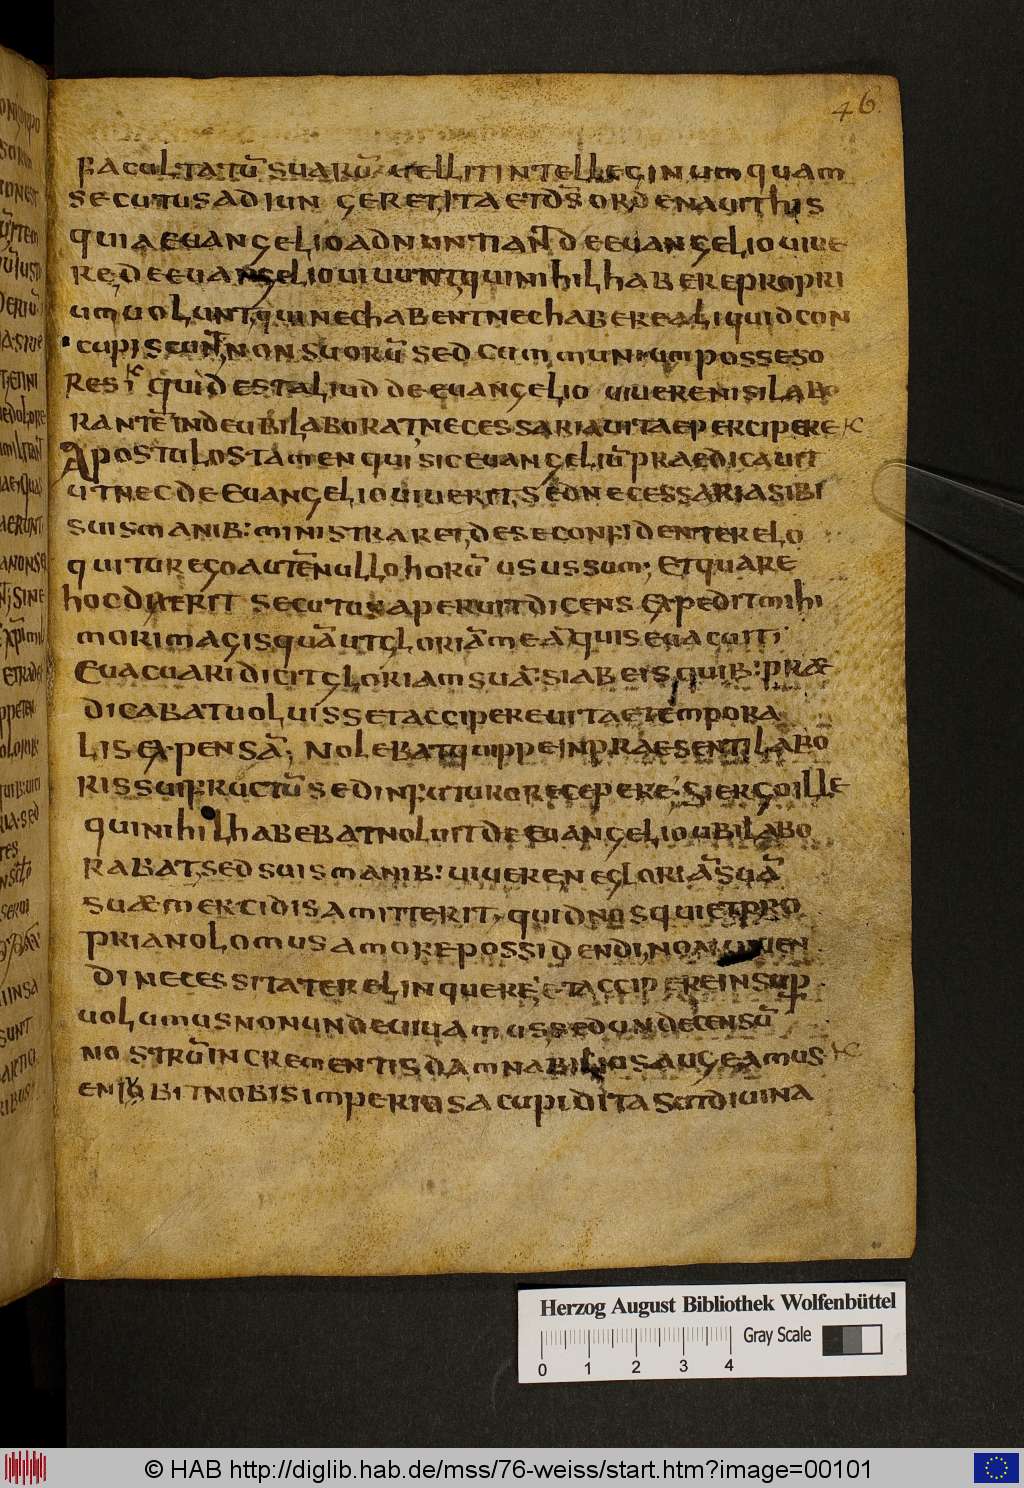 46.
FACULTATŪ SUARŪ UELLIT INTELLEGI NUMQUAM
SECUTUS ADIUNGERET, ITA ET DN̄S ORDENAUIT HIS
QUIA EUANGELIO ADNUNTIANT̄ DE EUANGELIO UIUE
RE, DE EUANGELIO UIUUNT, QUI NIHIL HABERE PROPRI
UM UOLUNT, QUI NEC HABENT NEC HABERE ALIQUID CON
CUPISCUNT, NON SUORŪ SED COMMUNIUM POSSESO
RES; QUID EST ALIUD DE EUANGELIO UIUERE NISI LABO
RANTĒ INDE UBI LABORAT NECESSARIA UITAE PERCIPERE
APOSTULOS TAMEN QUI SIC EUANGELIŪ PRAEDICAUIT
UT NEC DE EUANGELIO UIUERIT, SED NECESSARIA SIBI
SUIS MANIB: MINISTRARET, DE SE CONFIDENTER ELO
QUITUR EGO AUTĒ NULLO HORŪ USUS SUM; ET QUARE
HOC DIXERIT SECUTUS APERUIT DICENS EXPEDIT MIHI
MORI MAGIS QUĀ UT GLORIĀ MEĀ QUIS EUACUIT;
EUACUARI DICIT GLORIAM SUĀ: SI AB EIS QUIB: PRÆ
DICABAT UOLUISSET ACCIPERE UITAE TEMPORA
LIS EXPENSĀ; NOLEBAT QUIPPE IN PRAESENTI LABO
RIS SUI FRUCTŪ SED IN FUTURO RECEPERE; SI ERGO ILLE
QUI NIHIL HABEBAT NOLUIT DE EUANGELIO UBI LABO
RABAT, SED SUIS MANIB: UIUERE NE GLORIĀ SUĀ
SUÆ MERCIDIS AMITTERIT, QUID NOS QUI ET PRO
PRIA NOLOMUS AMORE POSSIDENDI, NON UIUEN
DI NECESSITATE RELINQUERE; ET ACCIPERE INSUP
UOLUMUS NON UNDE UIUAMUS SED UNDE CENSŪ
NOSTRŪ INCREMENTIS DAMNABILIUS AUGEAMUS
ENIM UBIT NOBIS IMPERIOSA CUPIDITAS UT DIUINA
Herzog August Bibliothek Wolfenbüttel
Gray Scale
0 1 2 3 4
© HAB http://diglib.hab.de/mss/76-weiss/start.htm?image=00101